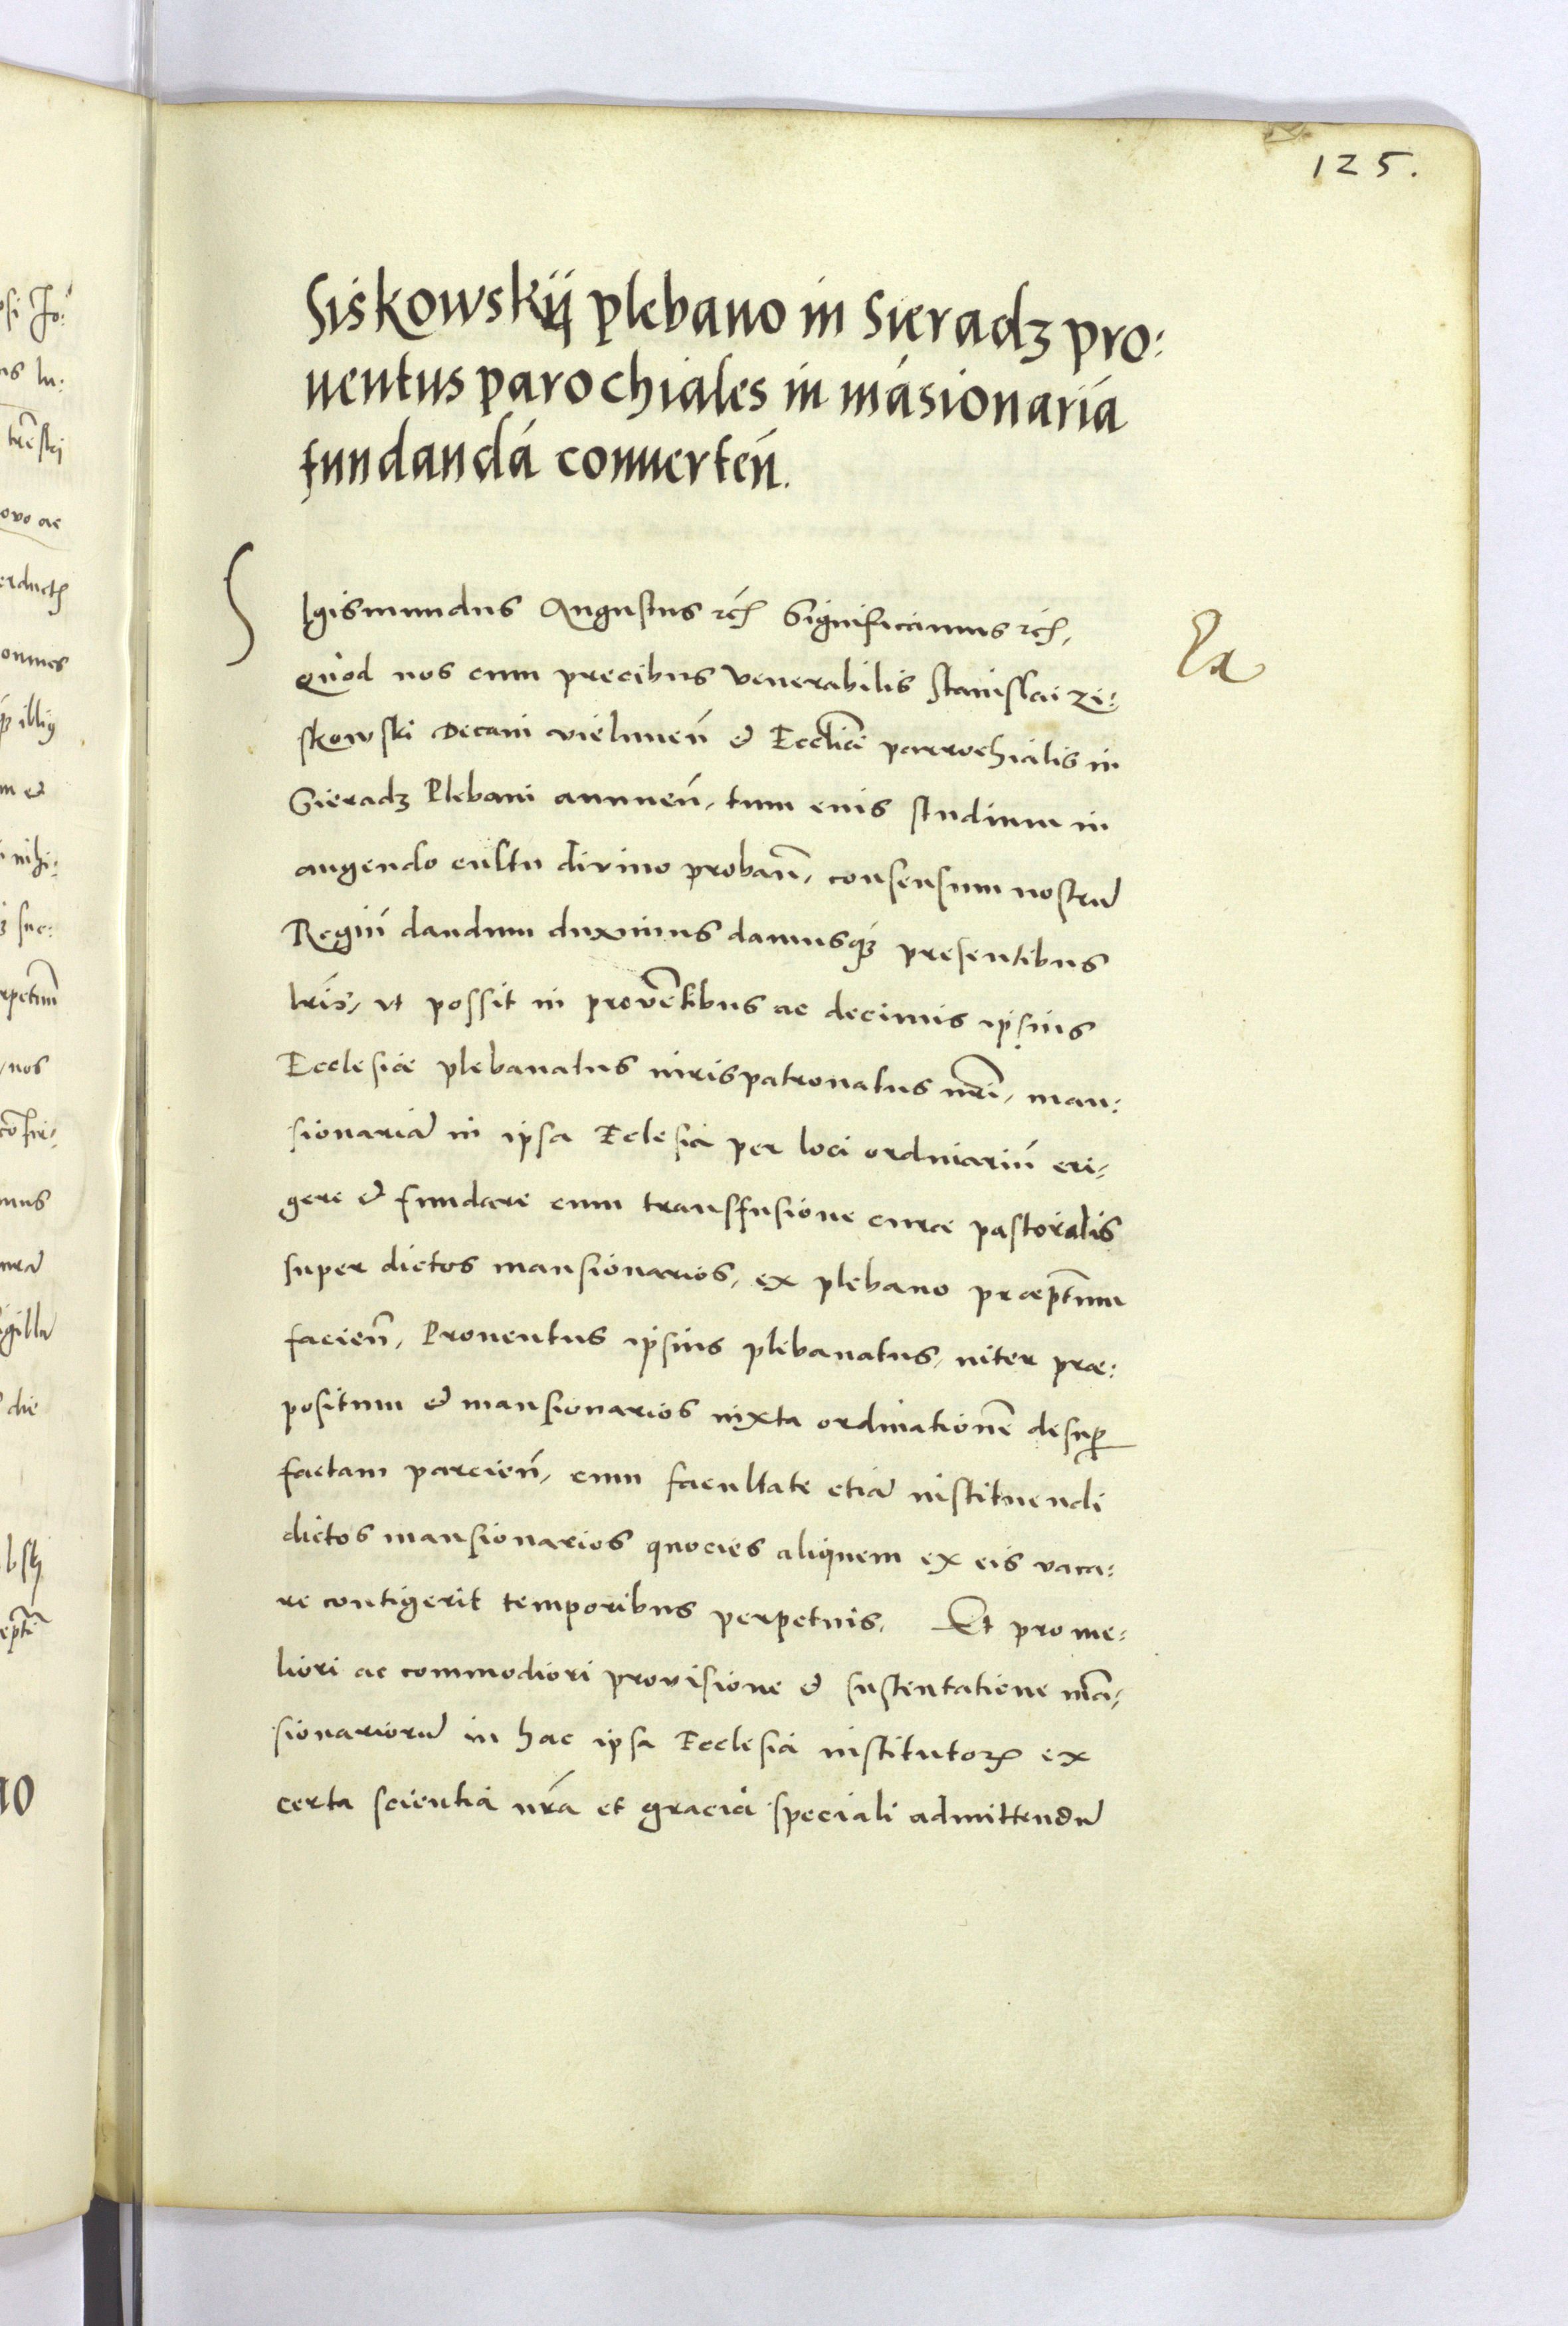 125.
Siskowskij plebano in Sieradz pro:
uentus parochiales in māsionariā
fundandā conuerteń.
Sigismundus Augustus etc̃ Significamus etc̃,
Quod nos cum precibus Venerabilis Stanislai Zi:
skowski Decani vielunen̄ et Eccl̄iæ parrochialis in
Sieradz Plebani annuen̄, tum euis studium in
augendo cultu divino proban̄, consensum nostrū
Regiū dandum duximus damusq̨ presentibus
lr̄is, vt possit in provētibus ac decimis ipsius
Ecclesiæ plebanatus iurispatronatus nr̄i, man:
sionariā in ipsa Eclesia per loci ordinariū eri,
gere et fundare cum transfusione curæ pastoralis
super dictos mansionarios, ex plebano præp̄tum
facien̄, Prouentus ipsius plebanatus, inter præ:
positum et mansionarios iuxta ordinationē desup̄
factam parcien̄, cum facultate etiā instituendi
dictos mansionarios quocies aliquem ex eis vaca:
re contigerit temporibus perpetuis. Et pro me:
liori ac commodiori provisione et sustentatione mā,
sionariorū in hac ipsa Ecclesia institutoꝝ ex
certa scientia nr̄a et gracia speciali admittendū